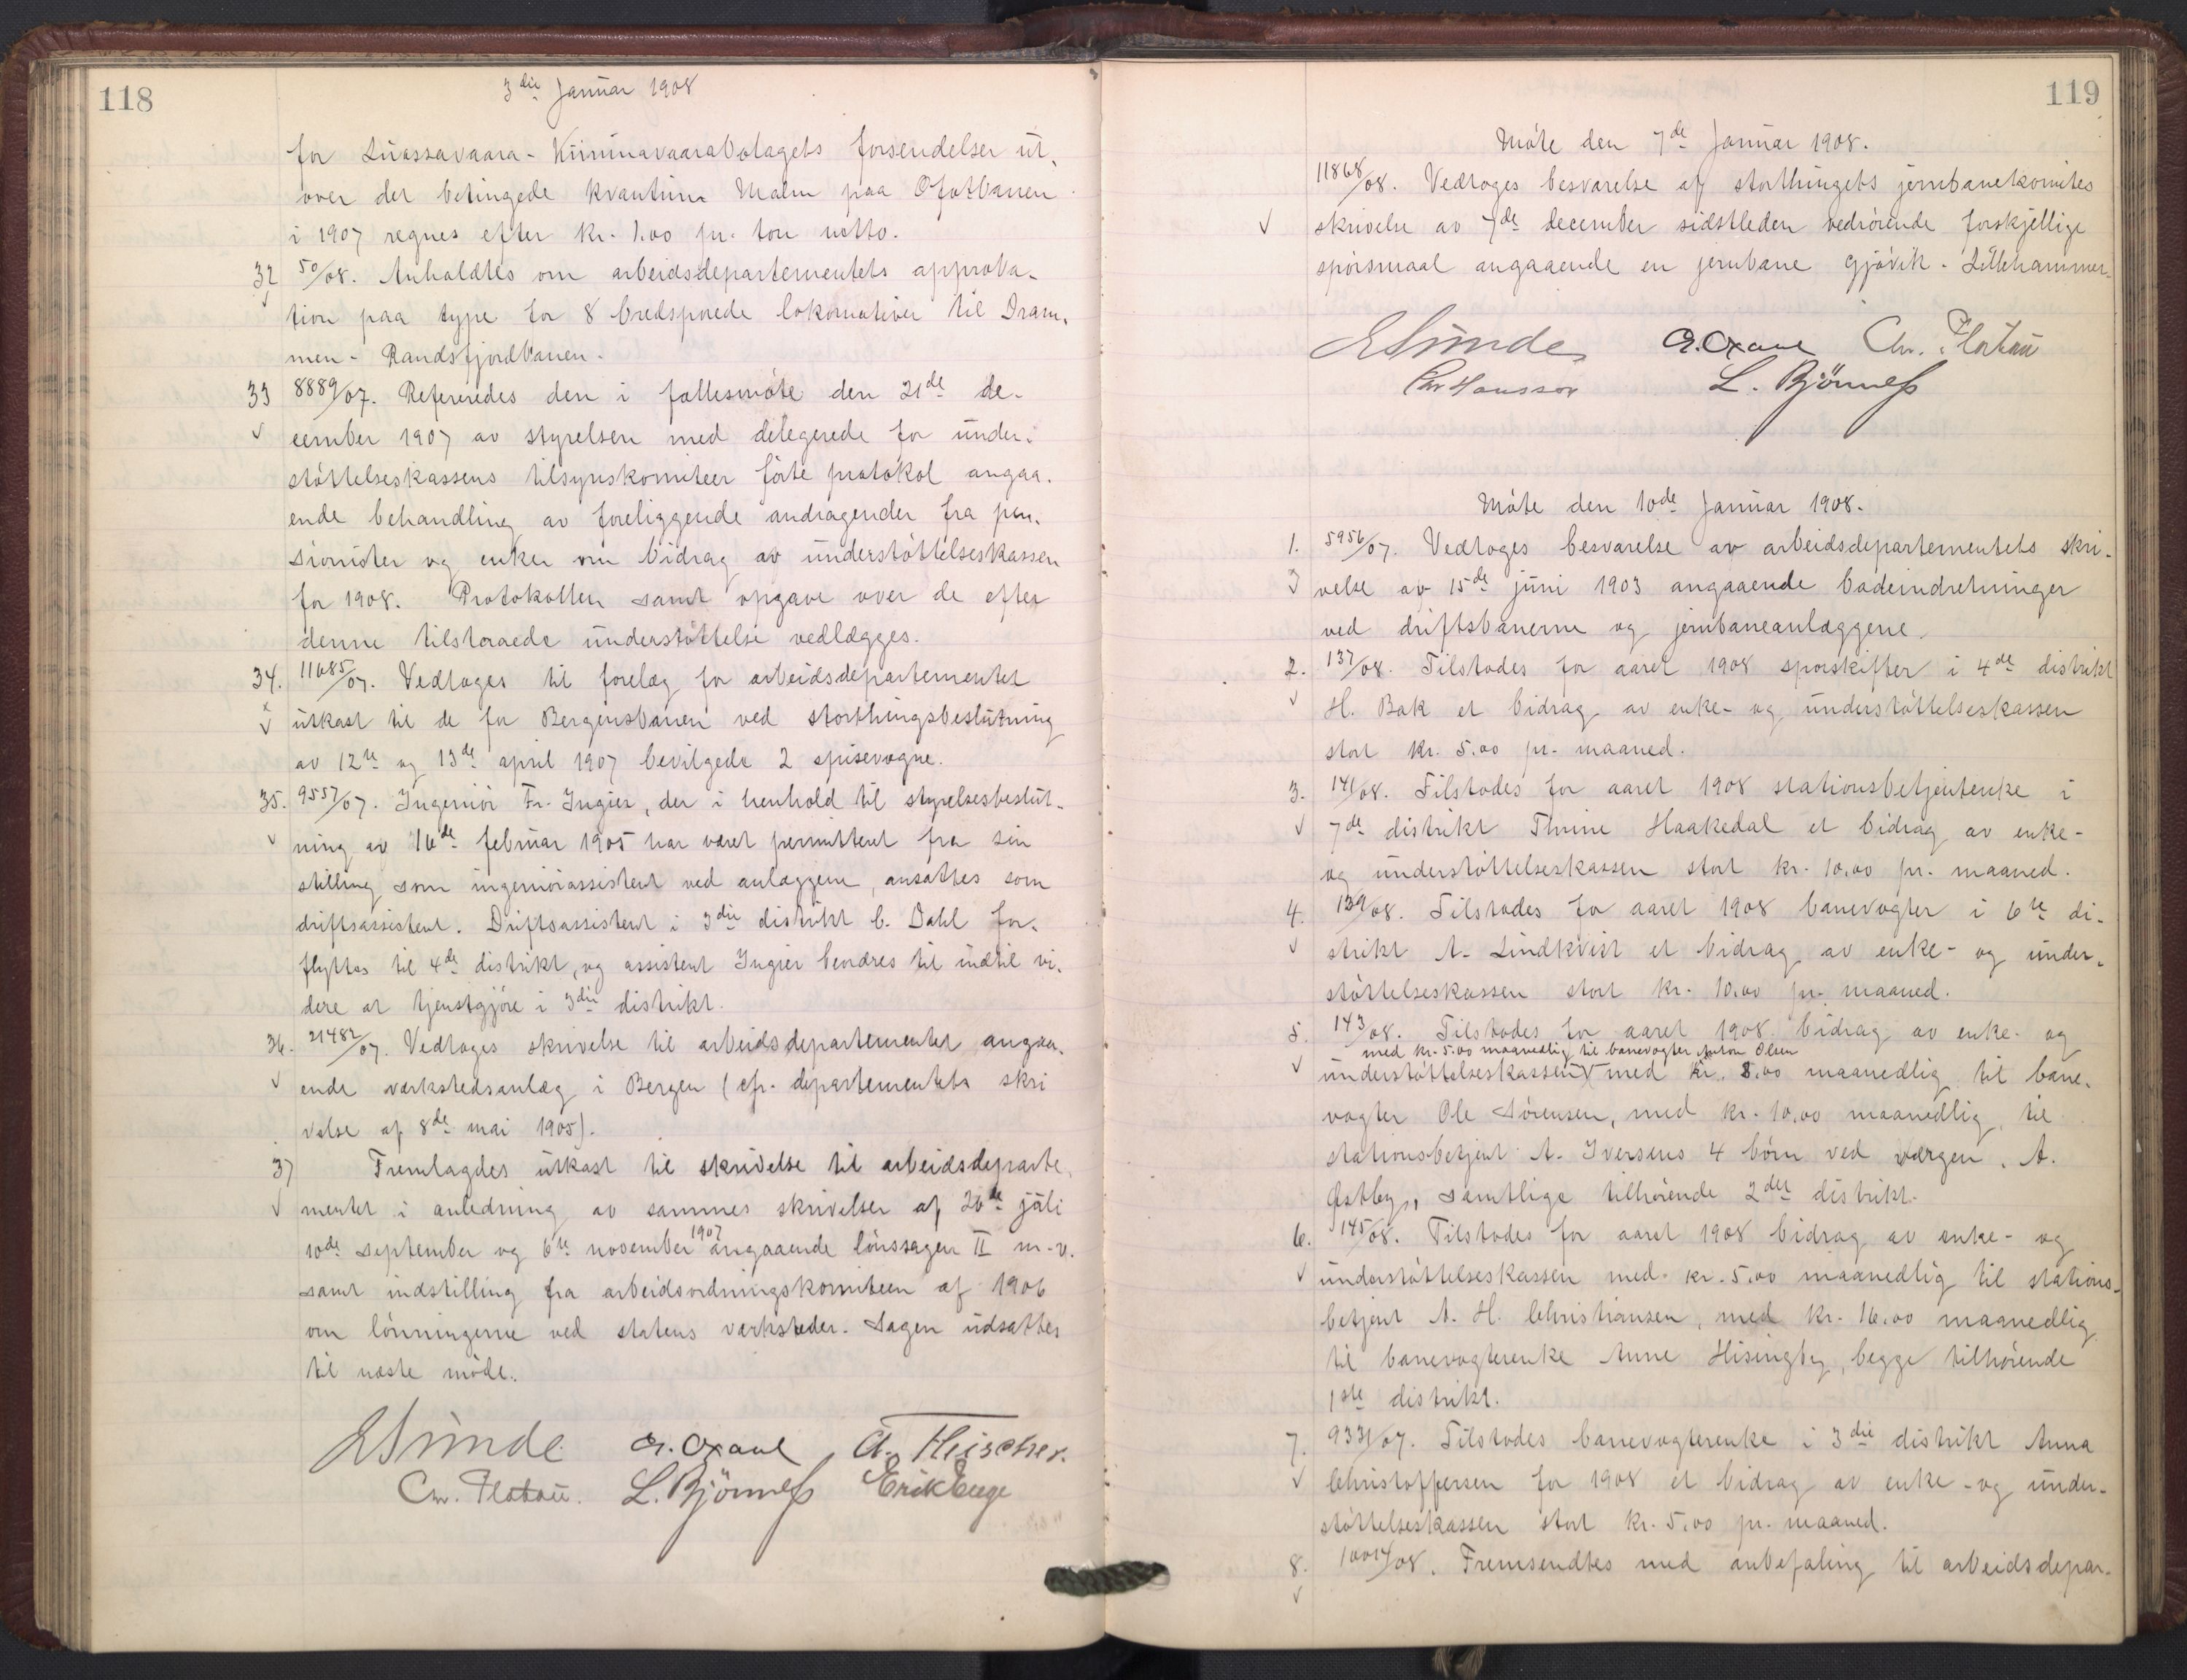 118
3die Januar 1908
for Luassavaara-Kiirunavaarabolagets forsendelser ut-
over det betingede kvantum Malm paa Ofotbanen
i 1907 regnes efter kr. 1.00 pr. ton netto.
32 50/08. Anholdtes om arbeidsdepartementets approba-
tion paa type for 8 bredsporede lokomotiver til Dram-
men-Randsfjordbanen.
33 8889/07. Refereredes den i fællesmöte den 21de de-
cember 1907 av styrelsen med delegerede for under-
støttelseskassens tilsynskomiteer førte protokol angaa-
ende behandling av foreliggende andragender fra pen-
sionister og enker om bidrag av understøttelseskassen
for 1908. Protokollen samt opgave over de efter
denne tilstaaede understøttelse vedlægges.
34. 11685/07. Vedtoges til forelæg for arbeidsdepartementet
utkast til de for Bergensbanen ved storthingsbeslutning
av 12te og 13de april 1907 bevilgede 2 spisevogne.
35. 9557/07. Ingeniør Fr. Ingier, der i henhold til styrelsesbeslut-
ning av 16de februar 1905 har været permitteret fra sin
stilling som ingeniørassistent ved anlæggene, ansattes som
driftsassistent. Driftsassistent i 3die distrikt C. Dahl for-
flyttes til 4de distrikt, og assistent Ingier beordres til indtil vi-
dere at tjenstgjøre i 3die distrikt.
36. 21482/07. Vedtoges skrivelse til arbeidsdepartementet angaa-
ende værkstedsanlæg i Bergen (cfr. departementets skri
velse af 8de mai 1905).
37 Fremlagdes utkast til skrivelse til arbeidsdeparte-
mentet i anledning av sammes skrivelser af 26de juli
10de september og 6te november 1907 angaaende lønssagen II m.v.
samt indstilling fra arbeidsordningskomiteen af 1906
om lønningerne ved statens værksteder. Sagen udsattes
til næste møde.
E Sunde E. Oxaal A. Fleischer.
Chr. Platou. L. Bjönness Erik Enge
119
Møte den 7de Januar 1908.
11868/08. Vedtoges besvarelse af storthingets jernbanekomites
skrivelse av 7de december sidstleden vedrørende forskjellige
spørsmaal angaaende en jernbane Gjøvik-Lillehammer.
E Sunde E. Oxaal Chr. Platou
Chr Hansson L. Bjönness
Møte den 10de Januar 1908.
1. 5956/07. Vedtoges besvarelse av arbeidsdepartementets skri-
velse av 15de juni 1903 angaaende badeindretninger
ved driftsbanerne og jernbaneanlæggene.
2. 137/08. Tilstodes for aaret 1908 sporskifter i 4de distrikt
H. Bak et bidrag av enke- og understøttelseskassen
stort kr. 5.00 pr. maaned.
3. 141/08. Tilstodes for aaret 1908 stationsbetjentenke i
7de distrikt Thrine Haakedal et bidrag av enke-
og understøttelseskassen stort kr. 10.00 pr. maaned.
4. 139/08. Tilstodes for aaret 1908 banevogter i 6te di-
strikt A. Lindkvist et bidrag av enke- og under-
støttelseskassen stort kr. 10.00 pr. maaned.
5. 143/08. Tilstodes for aaret 1908 bidrag av enke- og
med kr. 5.00 maanedlig til banevogter Anton Olsen
understøttelseskassen med kr. 8.00 maanedlig til bane-
vogter Ole Sørensen, med kr. 10.00 maanedlig til
stationsbetjent A. Iversens 4 børn ved værgen, A.
Østby, samtlige tilhørende 2det distrikt.
6. 145/08. Tilstodes for aaret 1908 bidrag av enke- og
understøttelseskassen med kr. 5.00 maanedlig til stations-
betjent A. H. Christiansen, med kr. 16.00 maanedlig
til banevogterenke Anne Hisingby, begge tilhørende
1ste distrikt.
7. 9331/07. Tilstodes banevogterenke i 3die distrikt Anna
Christoffersen for 1908 et bidrag av enke- og under-
støttelseskassen stort kr. 5.00 pr. maaned.
8. 10014/08. Fremsendtes med anbefaling til arbeidsdepar-